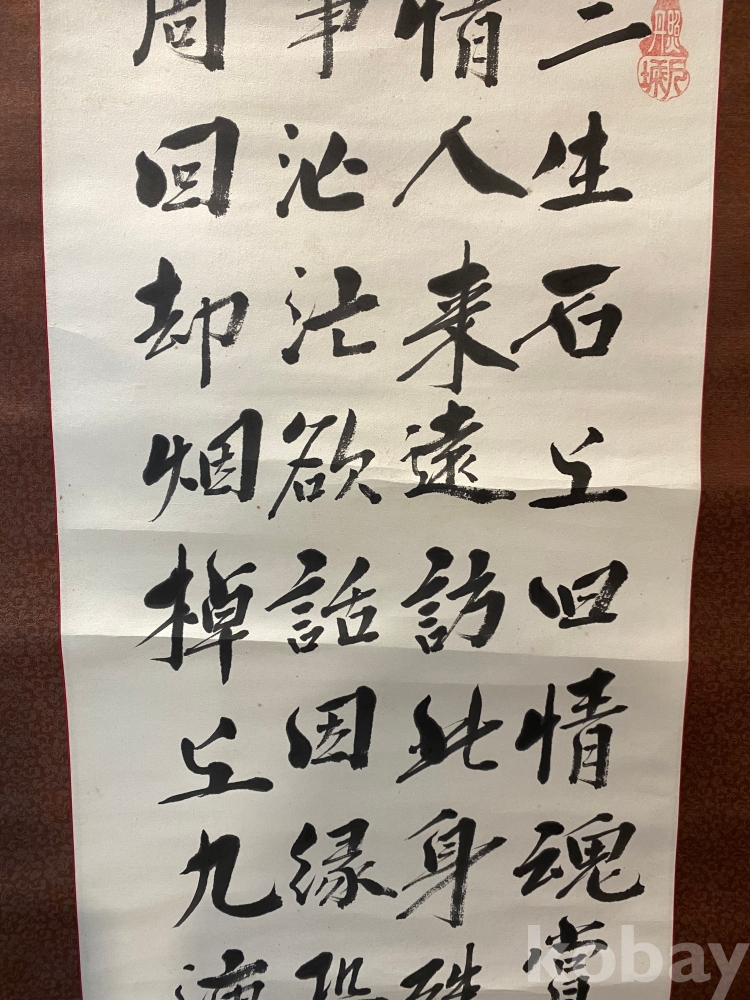 三生石上旧情魂賞
情人来遠訪此身
事茫茫欲話因緣恐
周回却烟棹上九
kobay